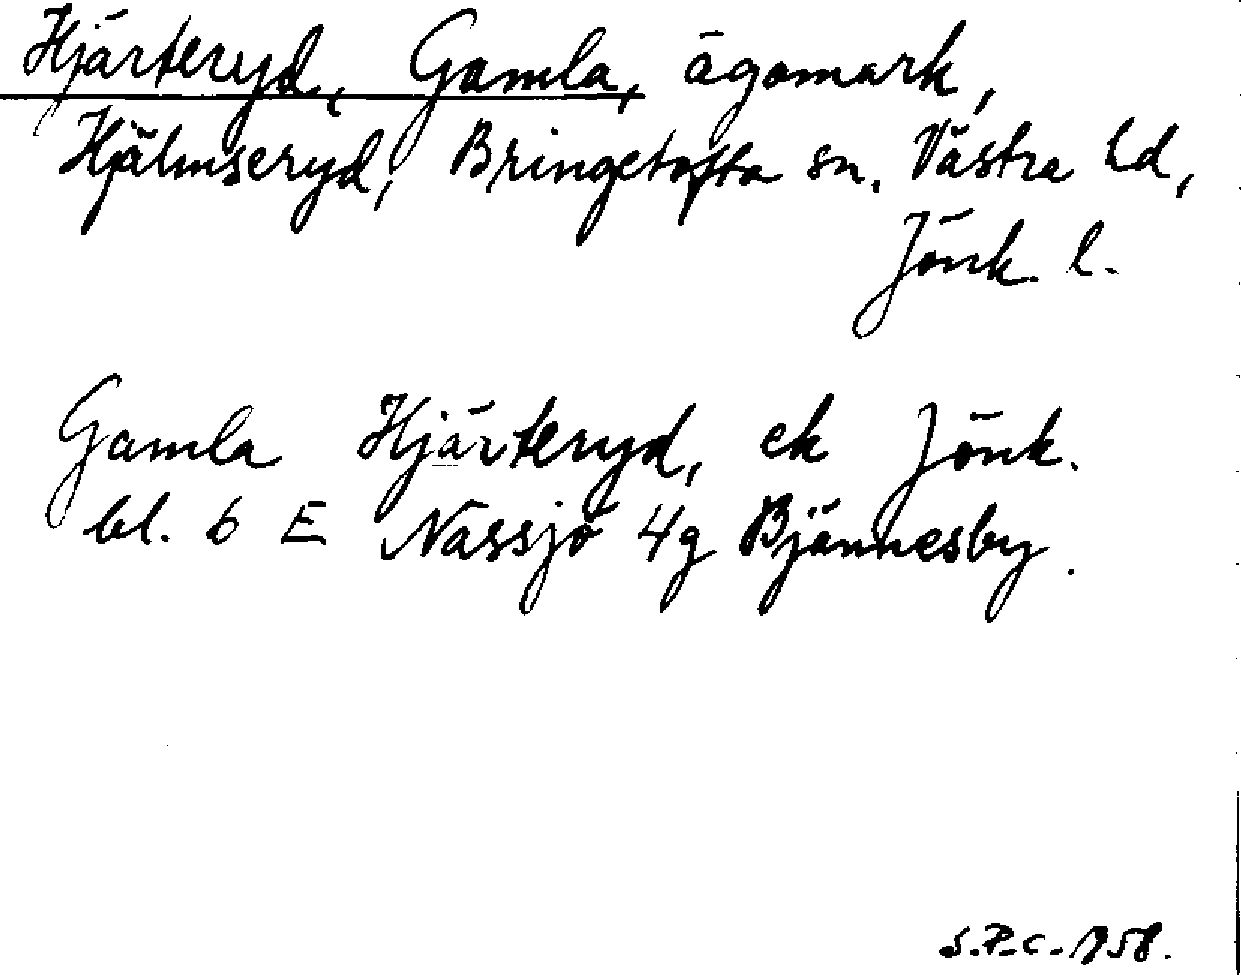 Hjärteryd, Gamla, ägomark,
Hjälmseryd, Bringetofta sn, Västra hd,
Jönk. l.
Gamla Hjärteryd, ek Jönk.
bl. 6 E Nässjö 4g Bjännesby.
S.P.C. 1958.